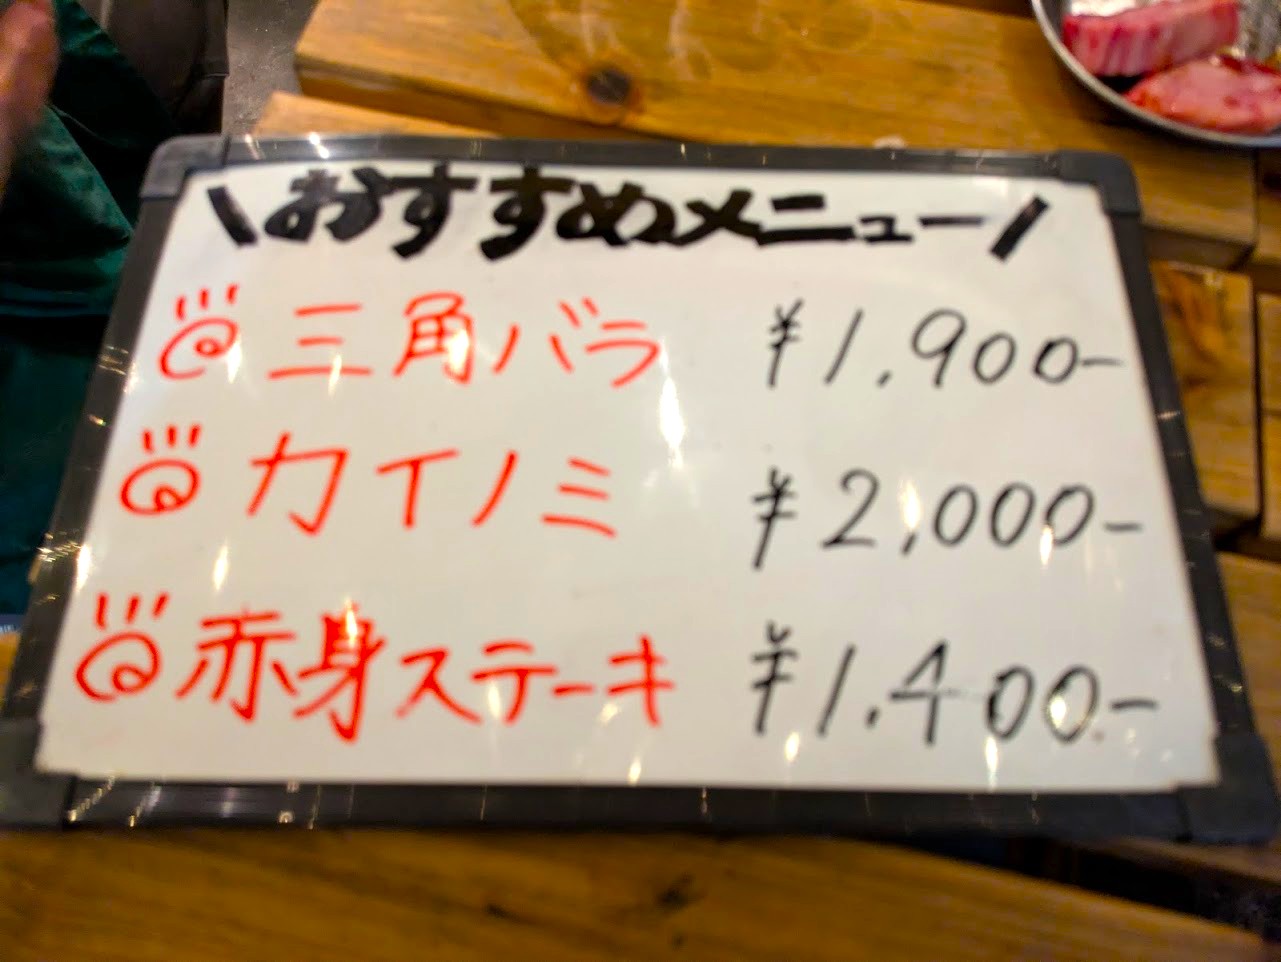 \おすすめメニュー/
三角バラ ¥1.900-
カイノミ ¥2,000-
赤身ステーキ ¥1.400-